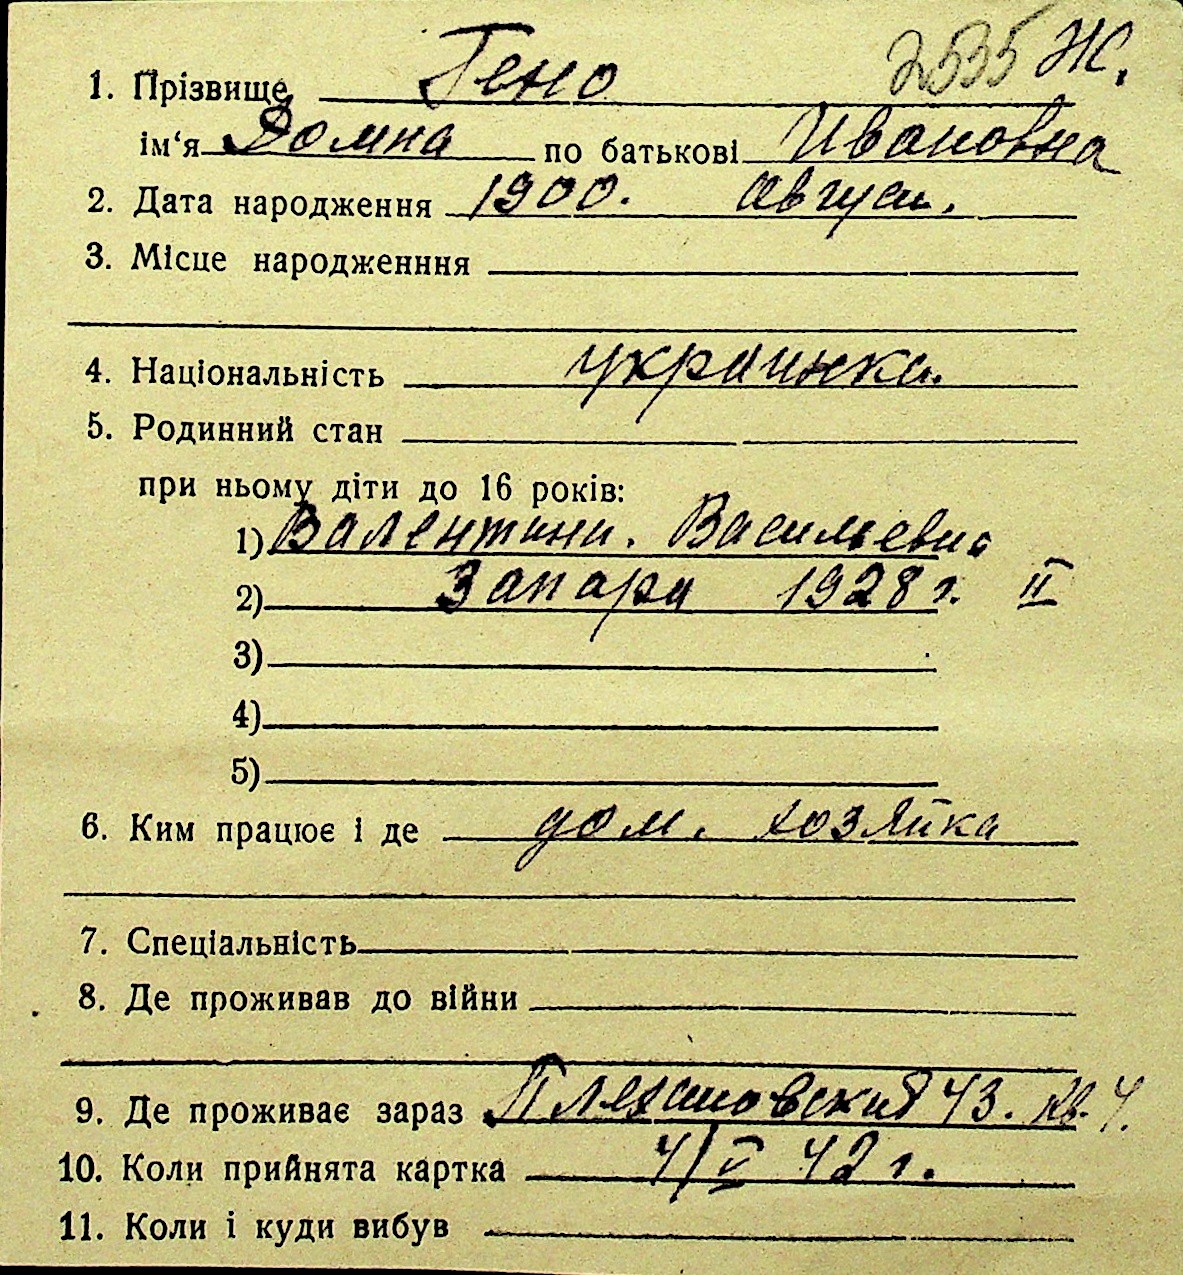 2535 Ж.
1. Прізвище Гено
ім‘я Домна по батькові Ивановна
2. Дата народження 1900. август.
3. Місце народженння
4. Національність украинка.
5. Родинний стан
при ньому діти до 16 років:
1) Валентина. Васильевна
2) Запара 1928 г. II
3)
4)
5)
6. Ким працює і де дом. хозяйка
7. Спеціальність
8. Де проживав до війни
9. Де проживає зараз 43. кв. 4.
10. Коли прийнята картка 4/V 42 г.
11. Коли і куди вибув